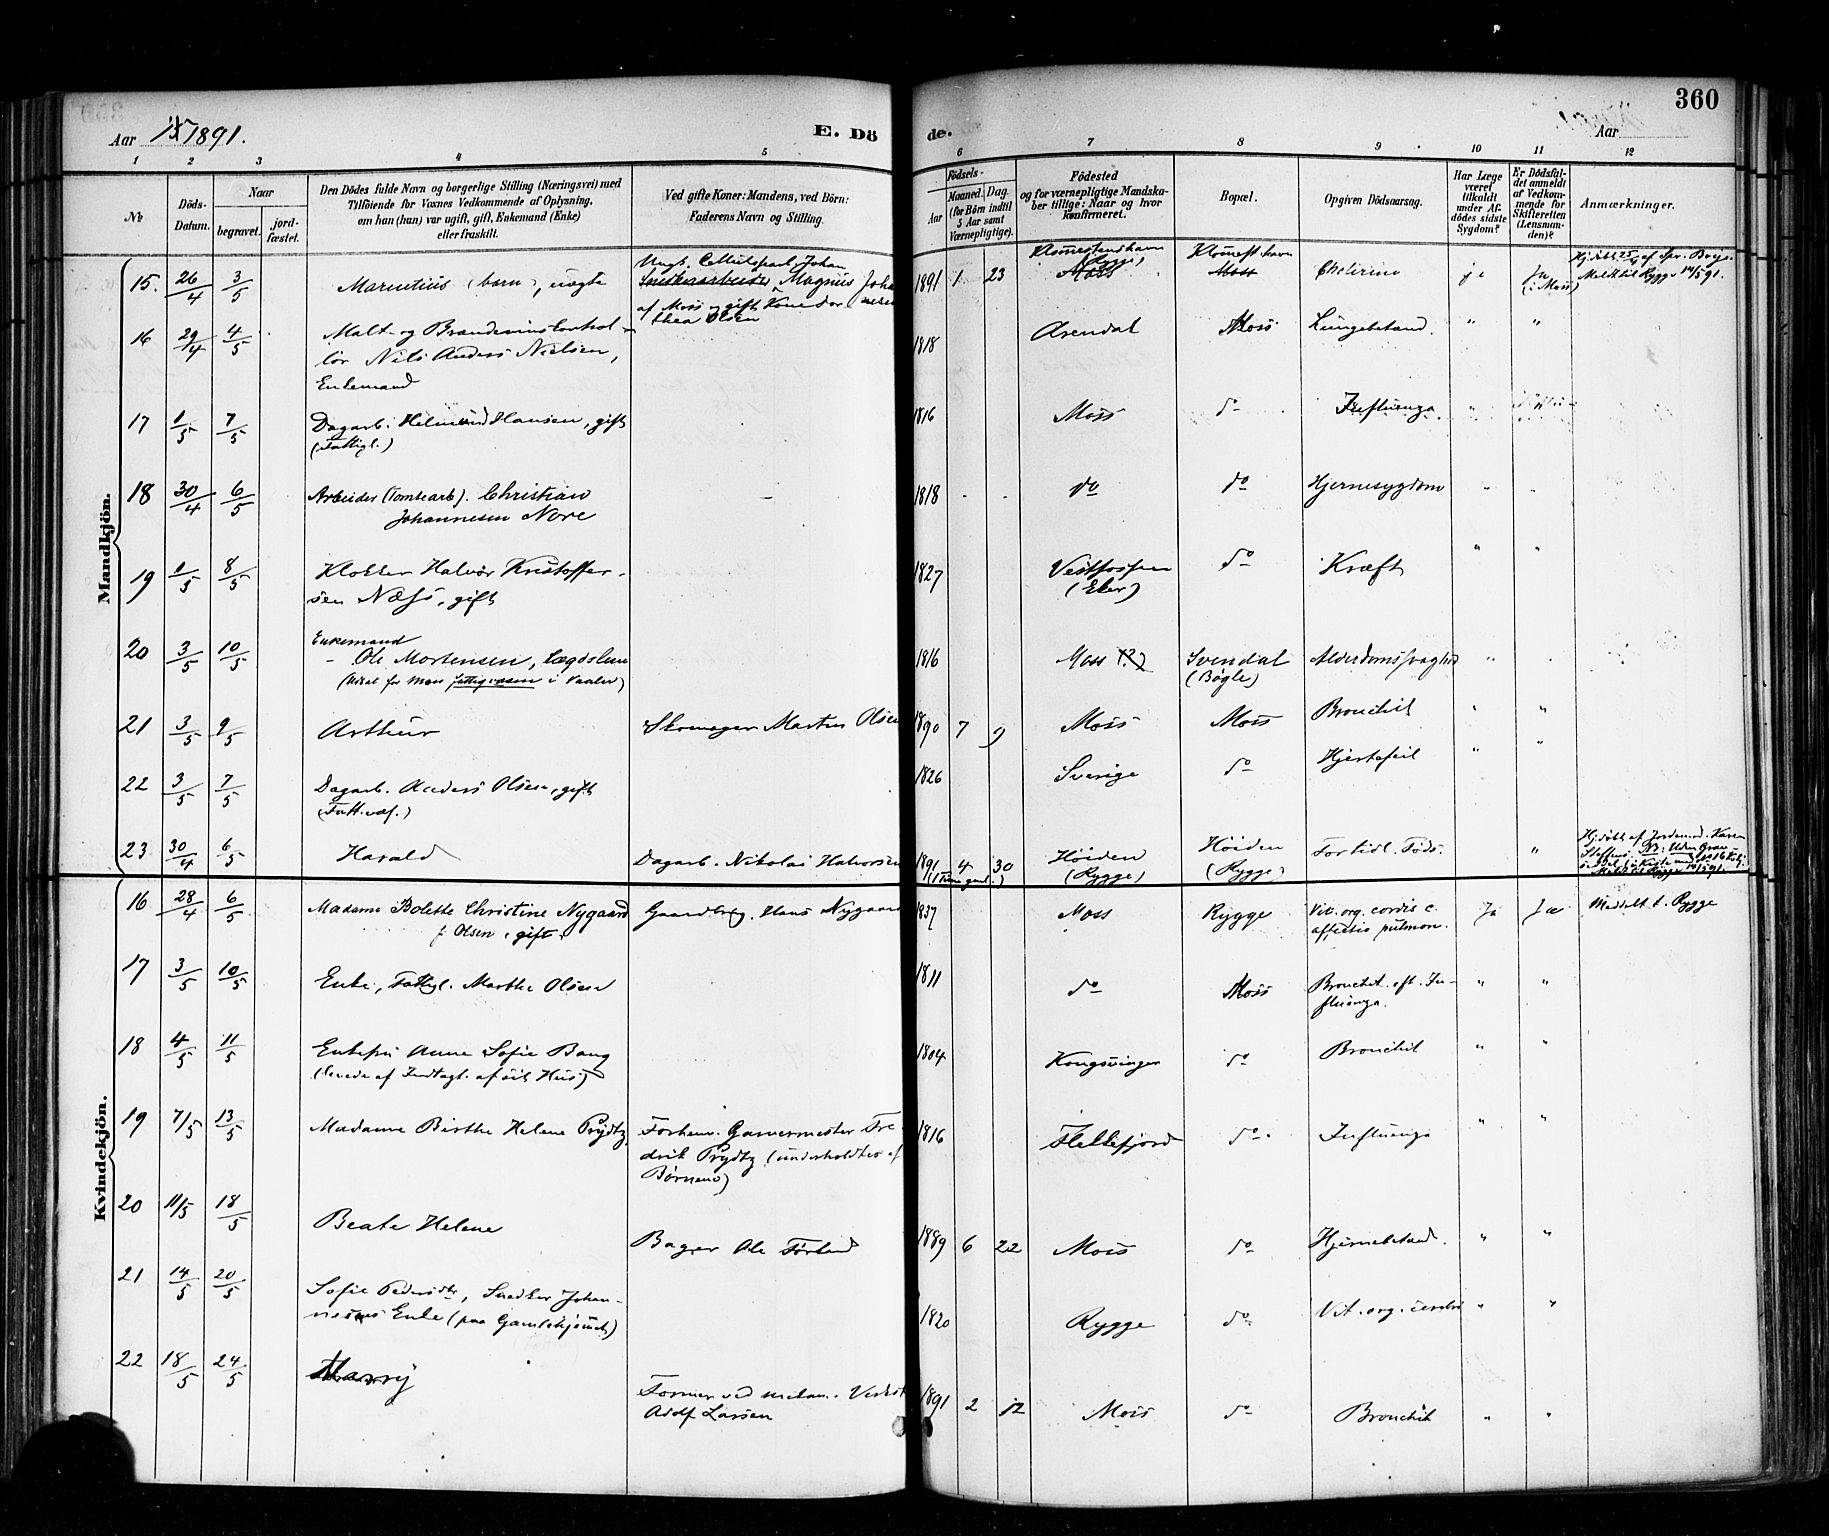 360
Aar 1891.
E. Dö
de.
Aar
1 2 3 4 5 6 7 8 9 10 11 12
No
Döds-
Datum.
Naar
begravet.
jord-
fæstet.
Den Dödes fulde Navn og borgerlige Stilling (Næringsvei) med
Tilföiende for Voxnes Vedkommende af Oplysning,
om han (hun) var ugift, gift, Enkemand (Enke)
eller fraskilt.
Ved gifte Koner: Mandens, ved Börn:
Faderens Navn og Stilling.
Födsels-
Aar
Maaned.
Dag
(for Börn indtil
5 Aar samt
Værnepligtige).
Födested
og for værnepligtige Mandska-
ber tillige: Naar og hvor
konfirmeret.
Bopæl.
Opgiven Dödsaarsag.
Har Læge
været
tilkaldt
under Af-
dödes sidste
Sygdom?
Er Dödsfal-
det anmeldt
af Vedkom-
mende for
Skifteretten
(Lensman-
den)?
Anmærkninger.
Mandkjön.
15. 26/4 3/5 (barn), uægte
Magnus Johan
af Moss og gift Kone Dor
thea Olsen
1891 1 23 (Rygge) Moss Moss
Ja
(i Moss)
Meldt til Rygge 14/5 91.
16 29/4 4/5 Malt- og Brændevinskontrol-
lør Nils Anders Nielsen,
Enkemand
1818 Arendal Moss Lungebetænd. " "
17 1/5 7/5 Dagarb. Helmund Hansen, gift
(Fattigl.)
1816 Moss do Influenza "
18 30/4 6/5 Arbeider (Tomtearb). Christian
Johannesen Nore
1818 do do Hjernesygdom " "
19 1/5 8/5 Klokker Halvor Kristoffer-
sen Næss, gift
1827 Vestfossen
(Eker)
do Kræft " "
20 3/5 10/5 Enkemand
Ole Mortensen, Lægdslem
(Udsat for Moss Fattigvæsen i Vaaler)
1816 Moss (?) Svendal
(Bøgle)
Alderdomssvaghed "
21 3/5 9/5 Arthur Skomager Martin Olsen 1890 7 9 Moss Moss Bronchit " "
22 3/5 7/5 Dagarb. Anders Olsen, gift
(Fatt.væs.)
1826 Sverige do Hjertefeil " "
23 30/4 6/5 Harald Dagarb. Nikolai Halvorsen 1891 4 30 Høiden
(Rygge)
Høiden
(Rygge)
For tidl. Føds. "
Hj.døbt af Jordemod. Karen
Kvindekjön.
16 28/4 6/5 Madame Bolette Christine Nygaard
f. Olsen, gift
Gaardbrug. Hans Nygaard
1837 Moss Rygge Vit. org. cordis c.
affectio pulmon.
Ja Ja Meddelt t. Rygge
17 3/5 10/5 Enke, Fattigl. Marthe Olsen 1811 do Moss Bronchit. eft. In-
fluenza.
" "
18 4/5 11/5 Enkefru Anne Sofie Bang
(Levede af Indtægt. af sit Hus)
1804 Kongsvinger do Bronchit " "
19 7/5 13/5 Madame Birthe Helene Prydtz Forhenv. Garvermester Fre-
drik Prydtz (underholdtes af
Børnene)
1816 Flekkefjord do Influenza " "
20 11/5 18/5 Beate Helene Bager Ole 1889 6 22 Moss do Hjernebetænd. " "
21 14/5 20/5 Sofie Pedersdtr, Snedker Johan-
nesens Enke (paa Gamlehjemmet)
1820 Rygge do Vit. org. cordis " "
22 18/5 24/5 Harry
Former ved mekan. Verkst
Adolf Larsen
1891 2 12 Moss do Bronchit " "